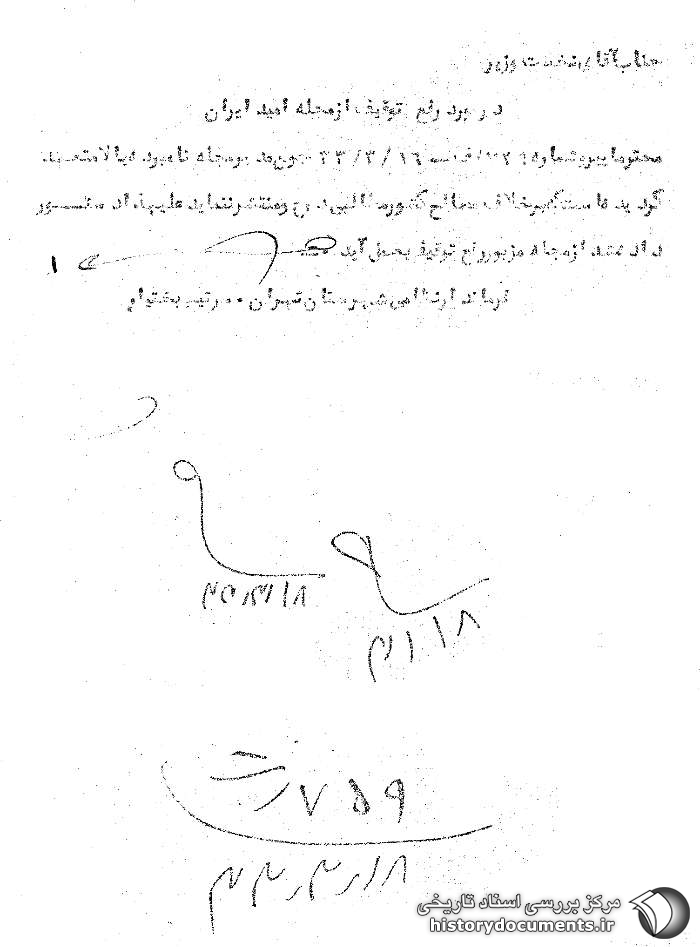 جناب آقای نخست وزیر
در مورد رفع توقیف از مجله امید ایران
محترما پیرو شماره ۱۶/۳/۳۳ چون مدیر مجله نامبرده بالا متعهد
گردیده است که برخلاف مصالح کشور مطالبی درج و منتشر ننماید علیهذا دستور
داده شد از مجله مزبور رفع توقیف بعمل آید
فرماندار نظامی شهرستان تهران سرتیپ بختیار
۱۸
۳/۱۸
۷۵۹
۳۳/۳/۱۸
مرکز بررسی اسناد تاریخی
historydocuments.ir